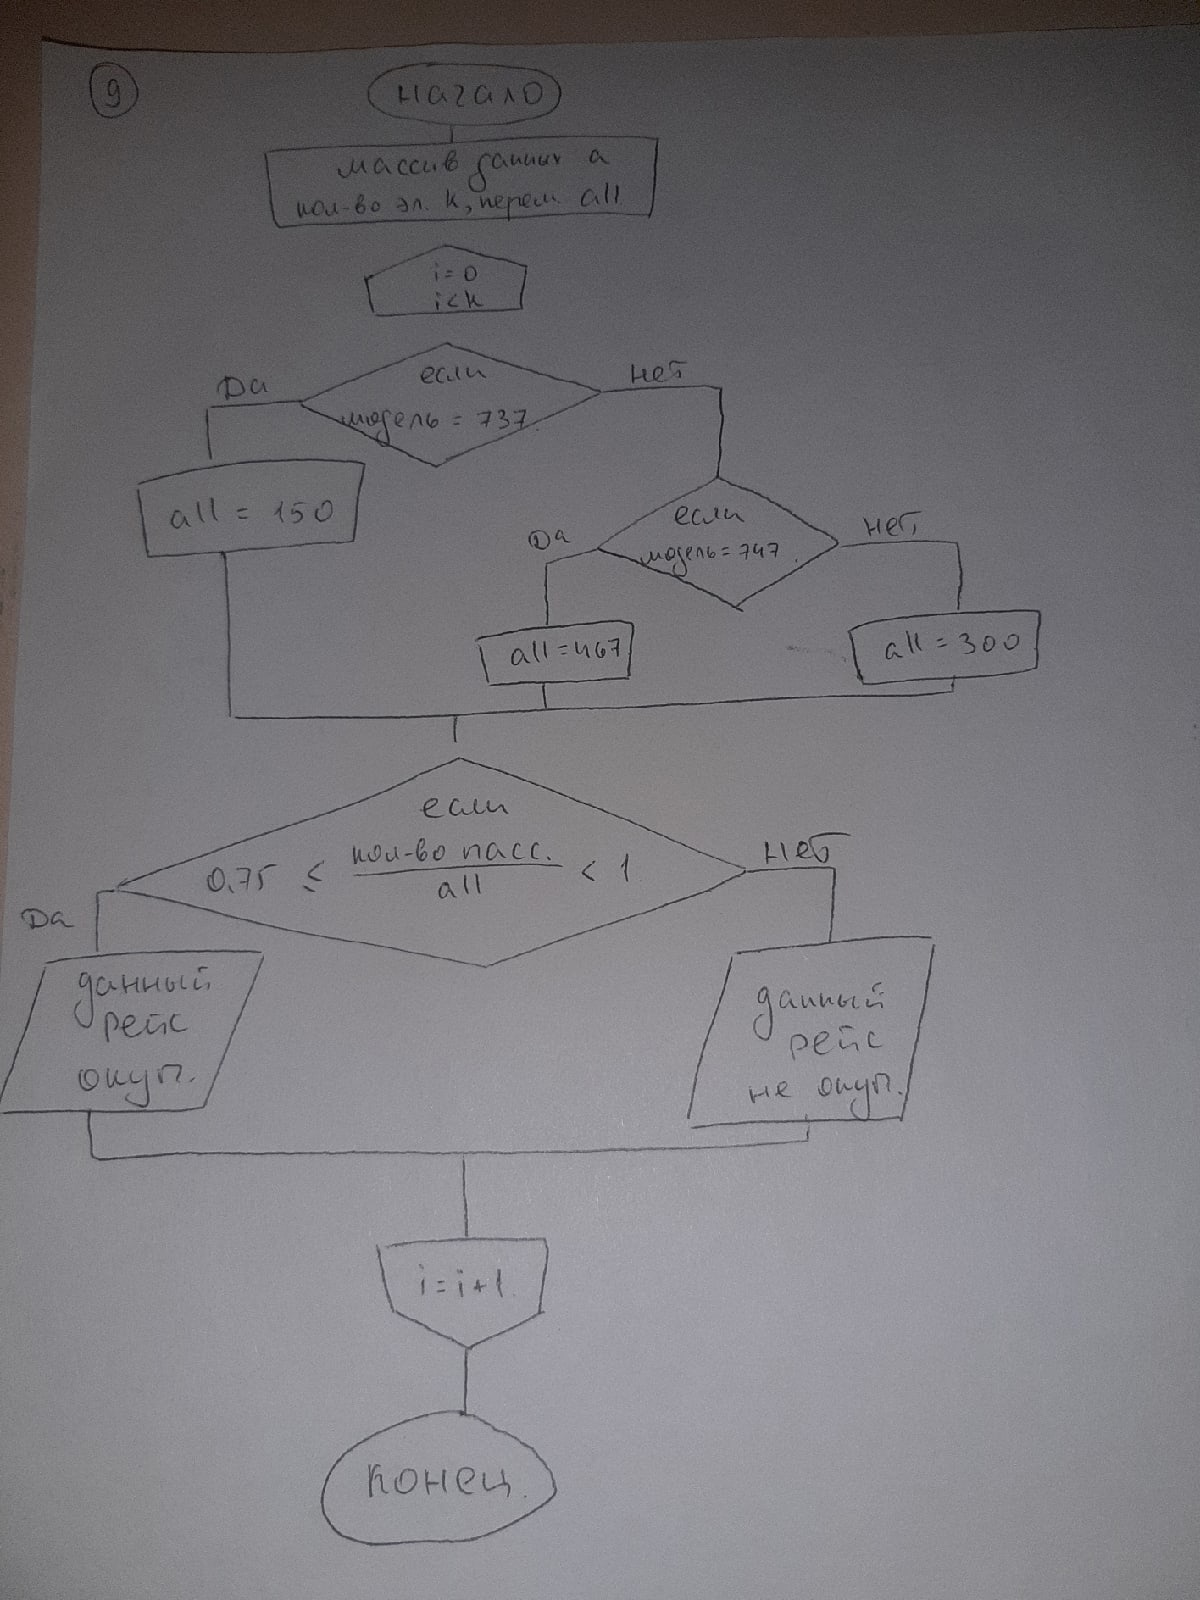 9
начало
массив данных a
кол-во эл. k, перем. all
i=0
i<k
Да
если
модель = 737
нет
all = 150
Да
если
модель = 747
нет
all = 467
all = 300
если
0.75 ≤ кол-во пасс. / all < 1
нет
Да
данный
рейс
окуп.
данный
рейс
не окуп.
i = i + 1
конец